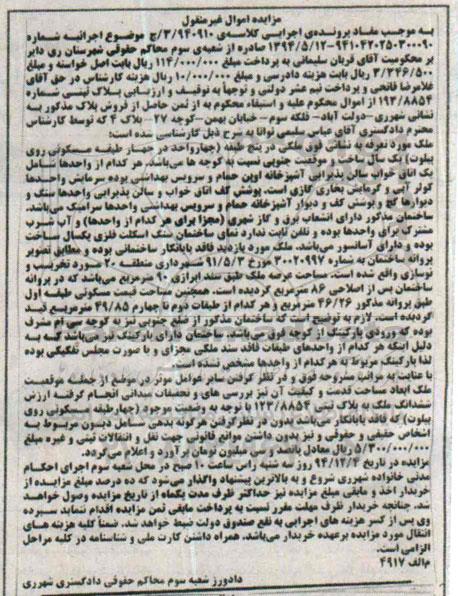 مزایده اموال غیرمنقول
به موجب مفاد پرونده‌ی اجرایی کلاسه‌ی ۳/۹۴۰۹۱۰/ج موضوع اجرائیه شماره
۹۴۱۰۴۲۰۲۵۳۰۰۰۹۰-۱۳۹۴/۵/۱۲ صادره از شعبه‌ی سوم محاکم حقوقی شهرستان ری دایر
بر محکومیت آقای قربان سلیمانی به پرداخت مبلغ ۱۱۴/۰۰۰/۰۰۰ ریال بابت اصل خواسته و مبلغ
۳/۳۴۶/۵۰۰ ریال بابت هزینه دادرسی و مبلغ ۱۰/۰۰۰/۰۰۰ ریال هزینه کارشناس در حق آقای
غلامرضا فاتحی و پرداخت نیم عشر دولتی و توجهاً به توقیف و ارزیابی پلاک ثبتی شماره
۱۹۳/۸۸۵۴ از اموال محکوم علیه و استیفاء محکوم به از ثمن حاصل از فروش پلاک مذکور به
نشانی شهرری-دولت آباد- فلکه سوم- خیابان بهمن-کوچه ۲۷-پلاک ۴ که توسط کارشناس
محترم دادگستری آقای عباس سلیمی توانا به شرح ذیل کارشناسی شده است:
ملک مورد تعرفه به نشانی فوق ملکی در پنج طبقه (چهارواحد در چهار طبقه مسکونی روی
پیلوت) یک سال ساخت و موقعیت جنوبی نسبت به کوچه ها می‌باشد. هر کدام از واحدها شامل
یک اتاق خواب سالن پذیرایی آشپزخانه اوپن حمام و سرویس بهداشتی بوده سرمایش واحدها
کولر آبی و گرمایش بخاری گازی است. پوشش کف اتاق خواب و سالن پذیرایی واحدها سنگ و
دیوارها گچ و پوشش کف و دیوار آشپزخانه حمام و سرویس بهداشتی واحدها سرامیک می‌باشد.
ساختمان مذکور دارای انشعاب برق و گاز شهری (مجزا برای هر کدام از واحدها) و آب شرب
مشترک برای واحدها بوده و تلفن ثابت ندارد نمای ساختمان سنگ اسکلت فلزی یکسال ساخت
بوده و دارای آسانسور می‌باشد. ملک مورد بازدید فاقد پایانکار ساختمانی بوده و مطابق تصویر
پروانه ساختمان به شماره ۳۰۰۲۰۹۹۷ مورخ ۹۱/۵/۳ شهرداری منطقه ۲۰ مورد تخریب و
نوسازی واقع شده است. مساحت عرصه ملک طبق سند ابرازی ۹۰ مترمربع می‌باشد که در پروانه
ساختمان پس از اصلاحی ۸۶ مترمربع گردیده است. همچنین مساحت قیمت مسکونی طبقه اول
طبق پروانه مذکور ۴۶/۲۶ مترمربع و هر کدام از طبقات دوم تا چهارم ۴۹/۸۵ مترمربع قید
گردیده است. لازم به توضیح است که ساختمان مذکور از ضلع جنوبی نیز به کوچه سی ام مشرف
بوده که ورودی پارکینگ از کوچه فوق می‌باشد. ساختمان دارای پارکینگ نیز می‌باشد که به
دلیل اینکه هر کدام از واحدهای طبقات فاقد سند ملکی مجزای و یا صورت مجلس تفکیکی بوده
لذا پارکینگ مربوط به هر کدام از واحدها مشخص نشده است.
با عنایت به مراتب مشروحه فوق و در نظر گرفتن سایر عوامل موثر در موضع از جمله موقعیت
ملک ابعاد مساحت قدمت و کیفیت آن نیز بررسی های و تحقیقات میدانی انجام گرفته ارزش
ششدانگ ملک به پلاک ثبتی ۱۲۳/۸۸۵۴ با توجه به وضعیت موجود (چهارطبقه مسکونی روی
پیلوت) که فاقد پایانکار می‌باشد بدون در نظر گرفتن هرگونه بدهی شامل دیون مربوط به
اشخاص حقیقی و حقوقی و نیز بدون داشتن موانع قانونی جهت نقل و انتقالات ثبتی و غیره مبلغ
۵/۳۰۰/۰۰۰/۰۰۰ ریال معادل پانصد و سی میلیون تومان برآورد و اعلام می‌گردد.
مزایده در تاریخ ۹۴/۱۲/۴ روز سه شنبه راس ساعت ۱۰ صبح در محل شعبه سوم اجرای احکام
مدنی خانواده شهرری شروع و به بالاترین پیشنهاد واگذار می‌شود که ده درصد مبلغ مزایده از
خریدار اخذ و مابقی مبلغ مزایده نیز حداکثر ظرف مدت یکماه از تاریخ مزایده وصول خواهد
شد. چنانچه خریدار ظرف مهلت مقرر نسبت به پرداخت مابقی ثمن مزایده اقدام ننماید سپرده
وی پس از کسر هزینه های اجرایی به نفع صندوق دولت ضبط خواهد شد. ضمناً کلیه هزینه های
انتقال مورد مزایده برعهده خریدار می‌باشد. همراه داشتن کارت ملی و شناسنامه در کلیه مراحل
الزامی است.
م الف ۴۹۱۷
دادورز شعبه سوم محاکم حقوقی دادگستری شهرری